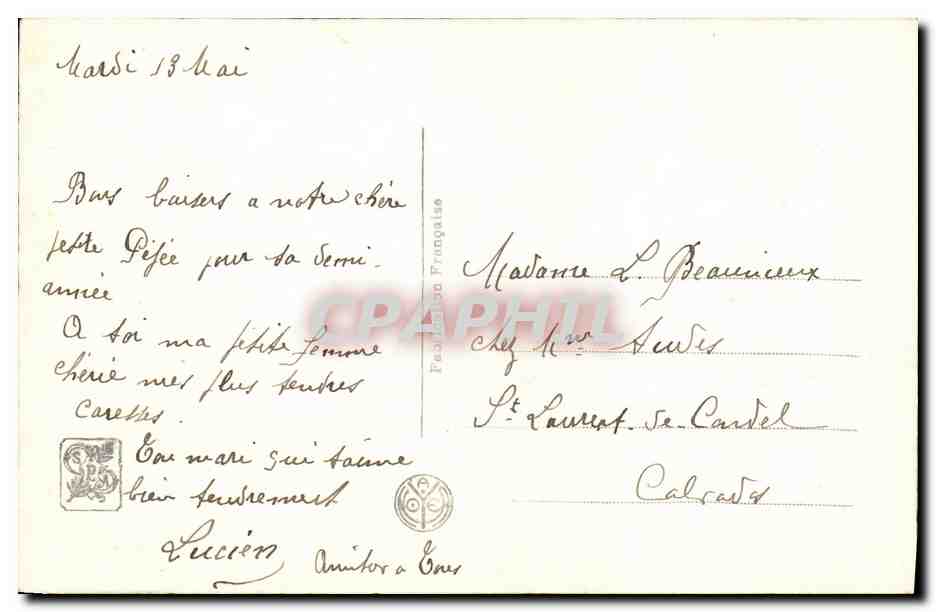 Mardi 13 Mai
Bons baisers a notre chère
petite Pésée pour sa demi-
année
A toi ma petite femme
chérie mes plus tendres
caresses.
Ton mari qui t'aime
bien tendrement
Lucien
Amitos a Tous
Fabrication Française
CPAPHIL
Madame L. Beaunieux
chez Mme
St Laurent-de-Condel
Calvados